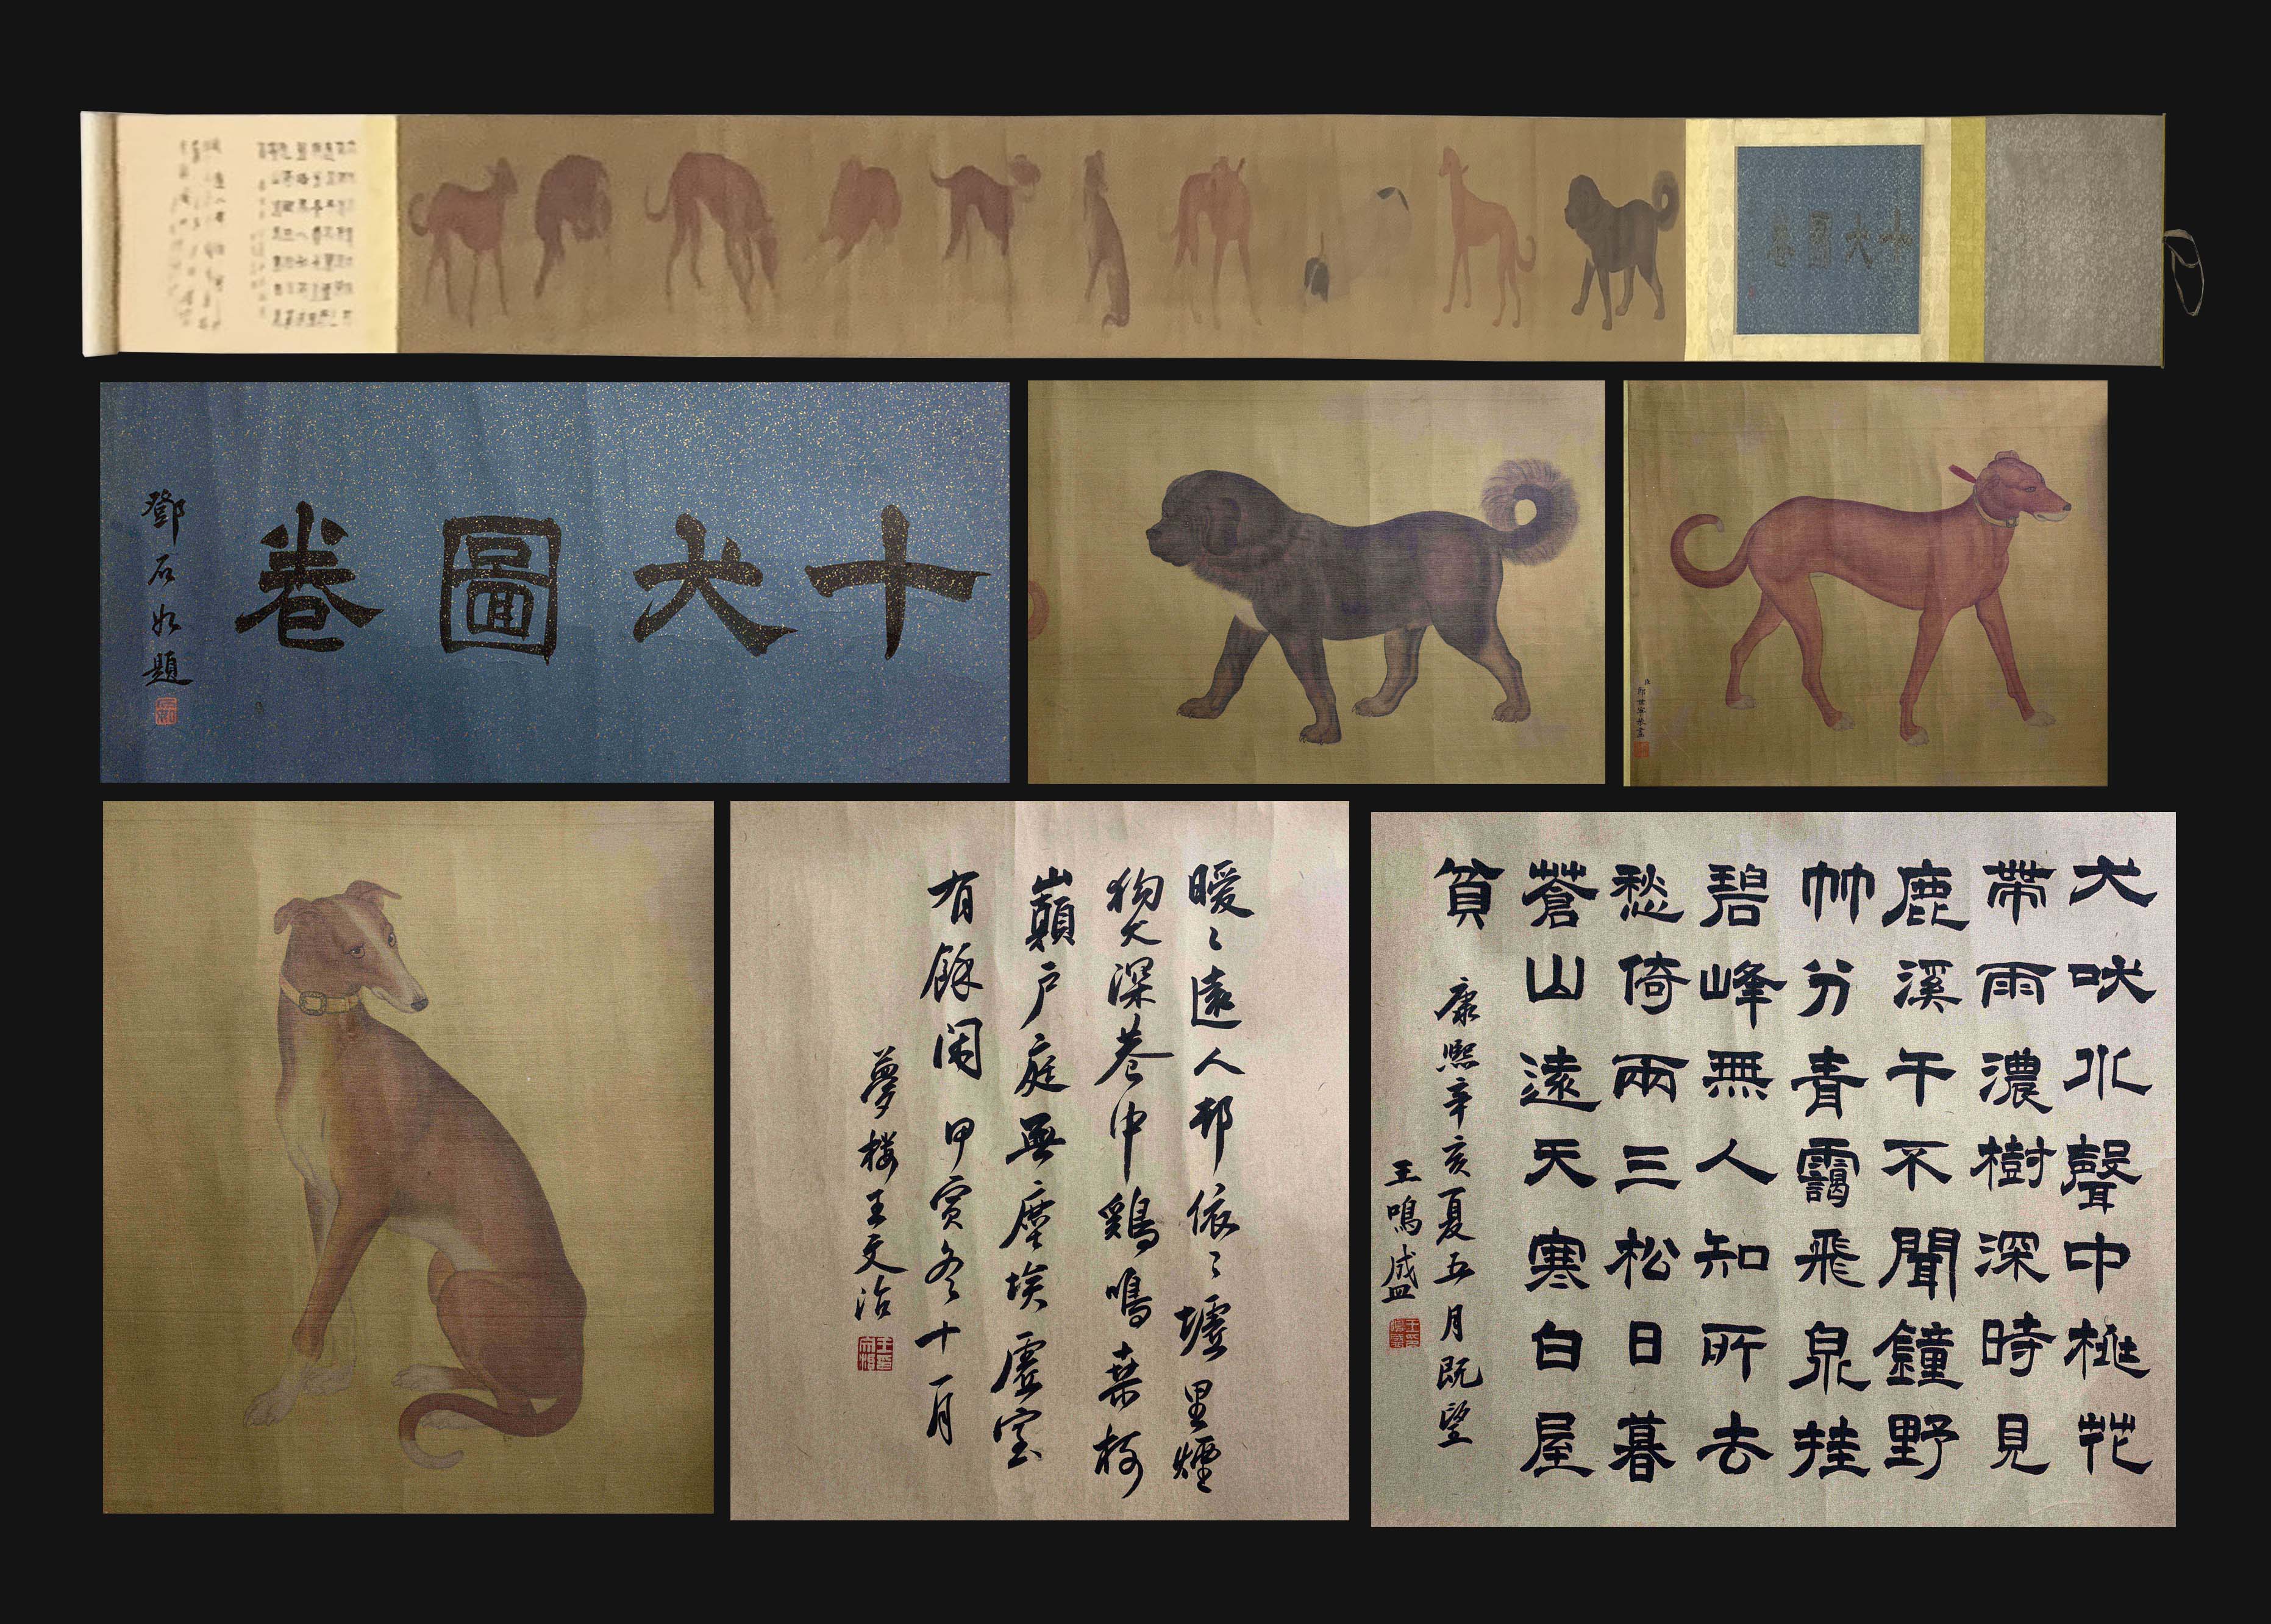 十犬圖卷
鄧石如題
臣郎世寧恭畫
曖〻遠人邨依〻墟里煙
狗犬深巷中鷄鳴桑樹
巔户庭無塵埃虛室
有餘閒 甲寅冬十一月
夢樓王文治
犬吠水聲中桃花
帶雨濃樹深時見
鹿溪午不聞鐘野
竹分青靄飛泉挂
碧峰無人知所去
愁倚兩三松日暮
蒼山遠天寒白屋
貧 康熙辛亥夏五月既望
王鳴盛